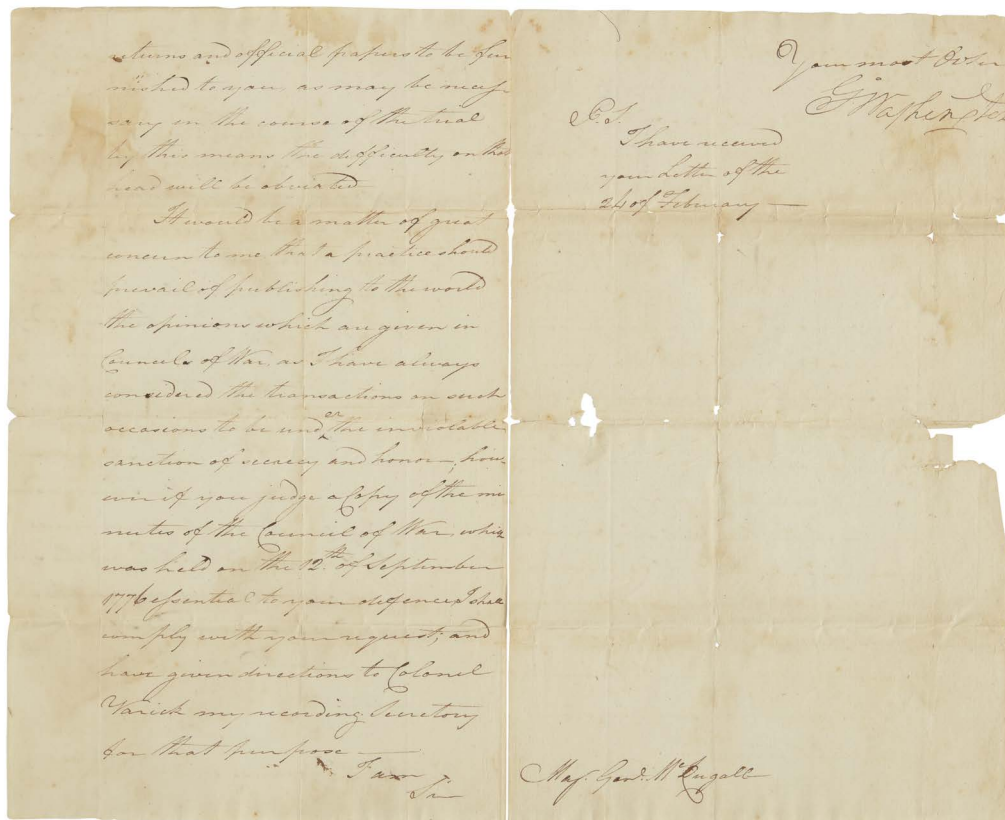 returns and official papers to be fur
nished to you, as may be neces
sary in the course of the trial
by this means the difficulty on that
head will be obviated
It would be a matter of great
concern to me that a practice should
prevail of publishing to the world
the opinions which are given in
Councils of War, as I have always
considered the transactions on such
occasions to be under the inviolable
sanction of secrecy and honor, how
ever if you judge a Copy of the mi
nutes of the Council of War, which
was held on the 12th of September
1776 essential to your defence I shall
comply with your request; and
have given directions to Colonel
Varick my recording Secretary
for that purpose —
I am
Sir
Your most Obdn
G Washington
P.S.
I have received
your Letter of the
24 of February —
Maj. Genl. McDugall